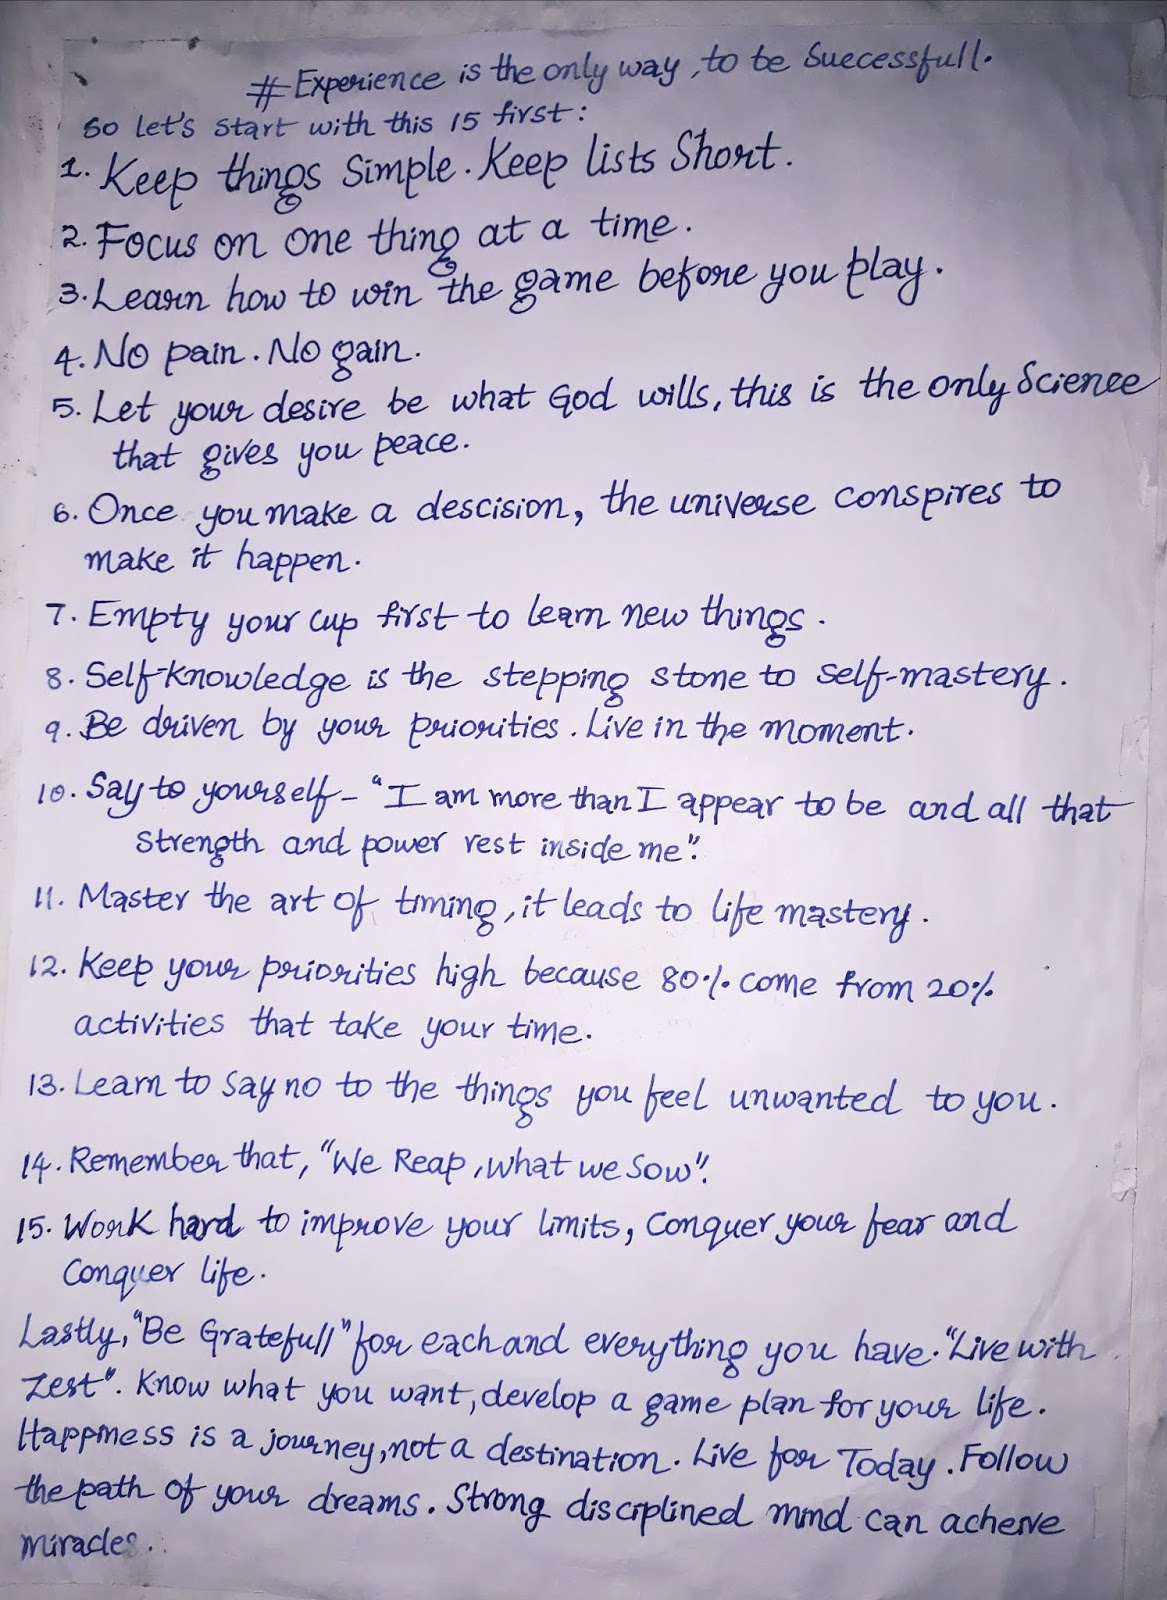 # Experience is the only way, to be Successfull.
So Let's start with this 15 first:
1. Keep things Simple. Keep lists Short.
2. Focus on one thing at a time.
3. Learn how to win the game before you play.
4. No pain. No gain.
5. Let your desire be what God wills, this is the only Science
that gives you peace.
6. Once you make a descision, the universe conspires to
make it happen.
7. Empty your cup first to learn new things.
8. Self-knowledge is the stepping stone to self-mastery.
9. Be driven by your priorities. Live in the moment.
10. Say to yourself - "I am more than I appear to be and all that
strength and power rest inside me".
11. Master the art of timing, it leads to life mastery.
12. Keep your priorities high because 80% come from 20%
activities that take your time.
13. Learn to say no to the things you feel unwanted to you.
14. Remember that, "We Reap, what we Sow".
15. Work hard to improve your limits, Conquer your fear and
Conquer life.
Lastly, "Be Gratefull" for each and everything you have. "Live with
Zest". Know what you want, develop a game plan for your life.
Happiness is a journey, not a destination. Live for Today. Follow
the path of your dreams. Strong disciplined mind can acheive
miracles.